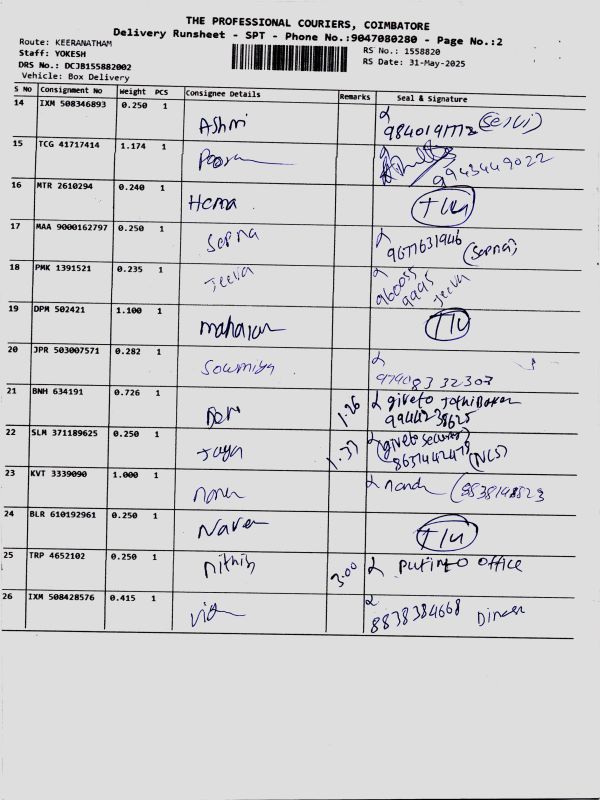 THE PROFESSIONAL COURIERS, COIMBATORE
Delivery Runsheet - SPT - Phone No.:9047080280 - Page No.:2
Route: KEERANATHAM
Staff: YOKESH
DRS No.: DCJB155882002
Vehicle: Box Delivery
RS No.: 1558820
RS Date: 31-May-2025
S No Consignment No Weight PCS Consignee Details Remarks Seal & Signature
14 IXM 508346893 0.250 1 Ashmi
15 TCG 41717414 1.174 1 9943449022
16 MTR 2610294 0.240 1 Hema
17 MAA 9000162797 0.250 1 Sapna 9677631946 (Sapna)
18 PMK 1391521 0.235 1 Jeeva 960055 9995 Jeeva
19 DPM 502421 1.100 1
20 JPR 503007571 0.282 1 Sowmiya 9790832307
21 BNH 634191 0.726 1 1.26 giveto 9944238625
22 SLM 371189625 0.250 1 Jaya 1.33 (giveto security) 8637442478
23 KVT 3339090 1.000 1
24 BLR 610192961 0.250 1 Naren
25 TRP 4652102 0.250 1 Nithis 3.00 Put into office
26 IXM 508428576 0.415 1 8838384668